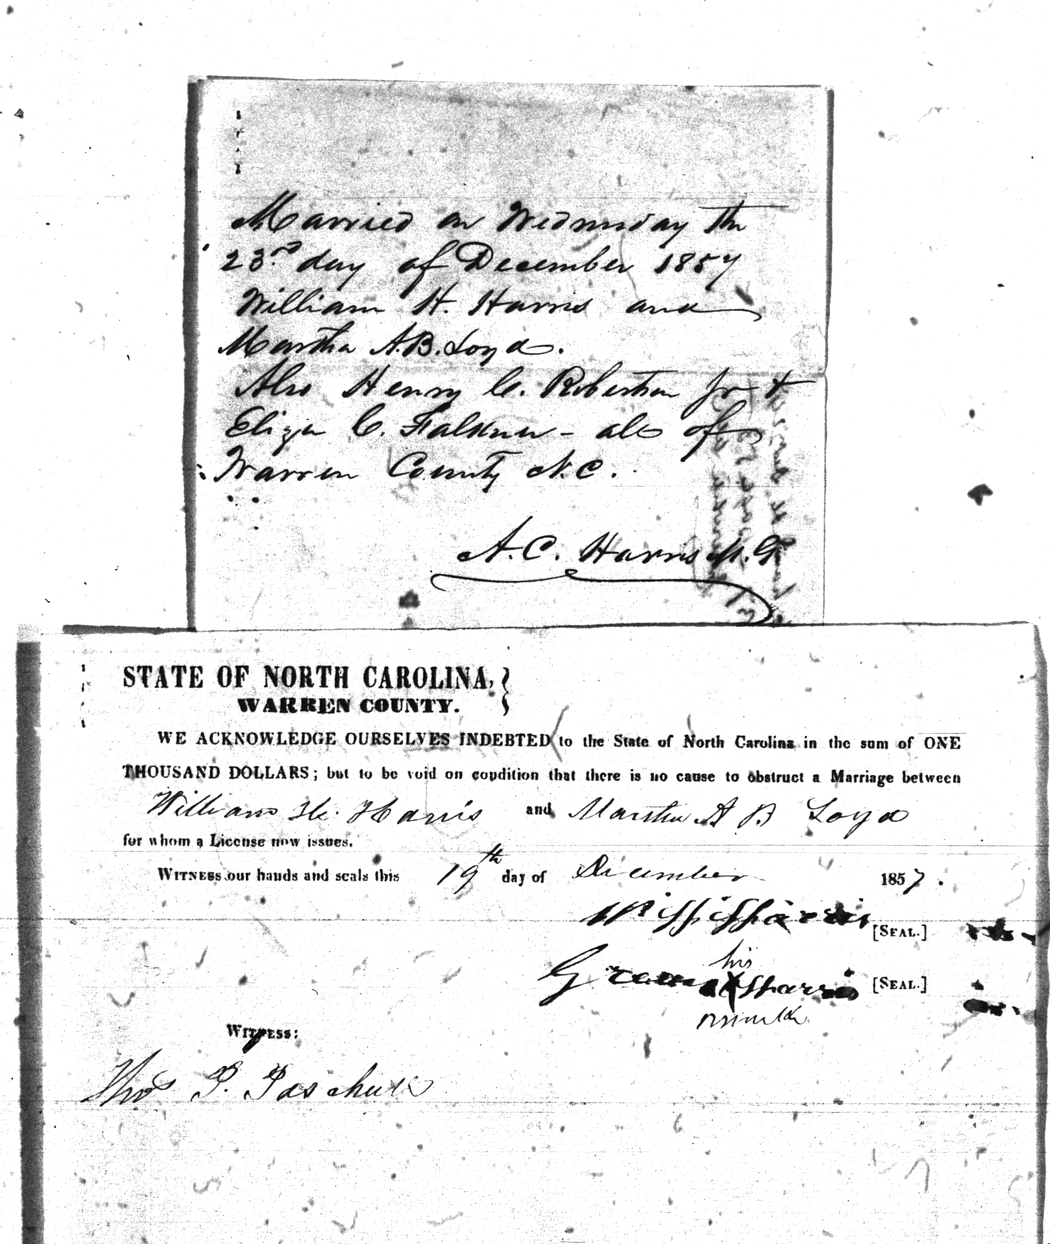 Married on Wednesday the
23rd day of December 1857
William H. Harris and
Martha A.B. Loyd.
Also Henry C. Robertson Jr &
Eliza C. Falkner - all of
Warren County N.C.
A.C. Harris M.G.
STATE OF NORTH CAROLINA,
WARREN COUNTY.
WE ACKNOWLEDGE OURSELVES INDEBTED to the State of North Carolina in the sum of ONE
THOUSAND DOLLARS; but to be void on condition that there is no cause to obstruct a Marriage between
William H. Harris and Martha A B Loyd
for whom a License now issues.
WITNESS our hands and seals this 19th day of December 1857.
Wm H Harris [SEAL.]
his
Green X Harris [SEAL.]
mark
WITNESS:
Thos P. Paschall